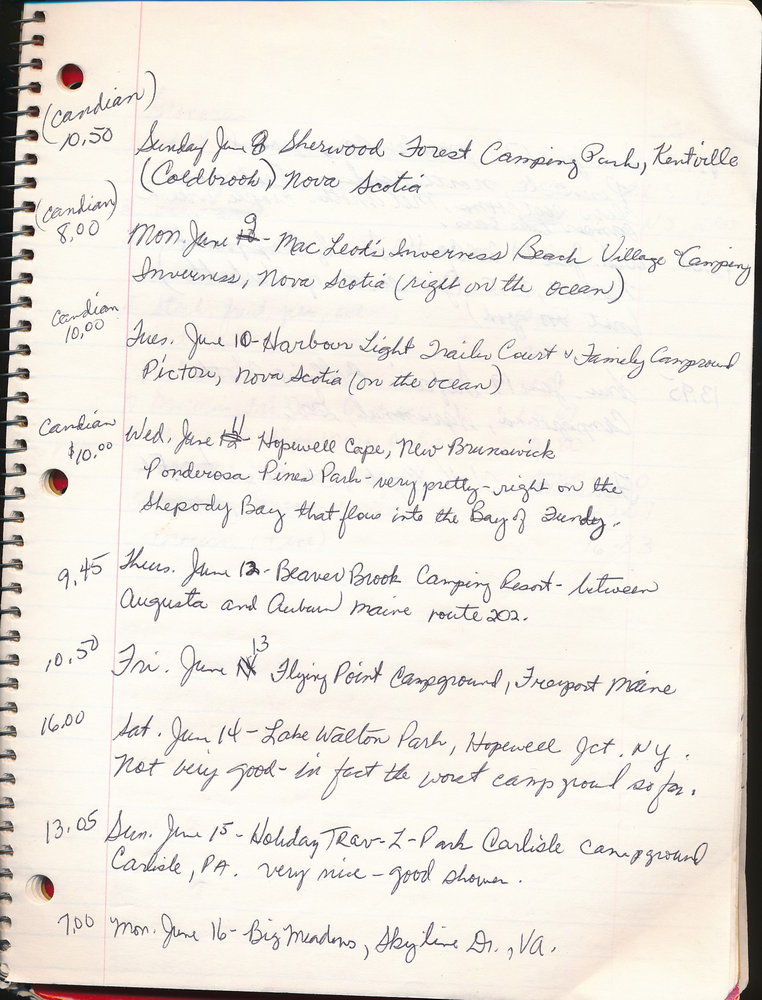 (Candian)
10.50
Sunday June 8 Sherwood Forest Camping Park, Kentville
(Coldbrook) Nova Scotia
(Candian)
8.00
Mon. June 9 - Mac Leod's Inverness Beach Village & Camping
Inverness, Nova Scotia (right on the ocean)
Candian
10.00
Tues. June 10 - Harbour Light Trailer Court & Family Campround
Pictou, Nova Scotia (on the ocean)
Candian
$10.00
Wed. June 11 - Hopewell Cape, New Brunswick
Ponderosa Pines Park - very pretty - right on the
Shepody Bay that flows into the Bay of Fundy.
9.45
Thurs. June 12 - Beaver Brook Camping Resort - between
Augusta and Auburn Maine route 202.
10.50
Fri. June 13 Flying Point Campground, Freeport Maine
16.00
Sat. June 14 - Lake Walton Park, Hopewell Jct. NY.
Not very good - in fact the worst campground so far.
13.05
Sun. June 15 - Holiday Trav-L-Park Carlisle campground
Carlisle, PA. very nice - good shower.
7.00
Mon. June 16 - Big Meadows, Skyline Dr., VA.